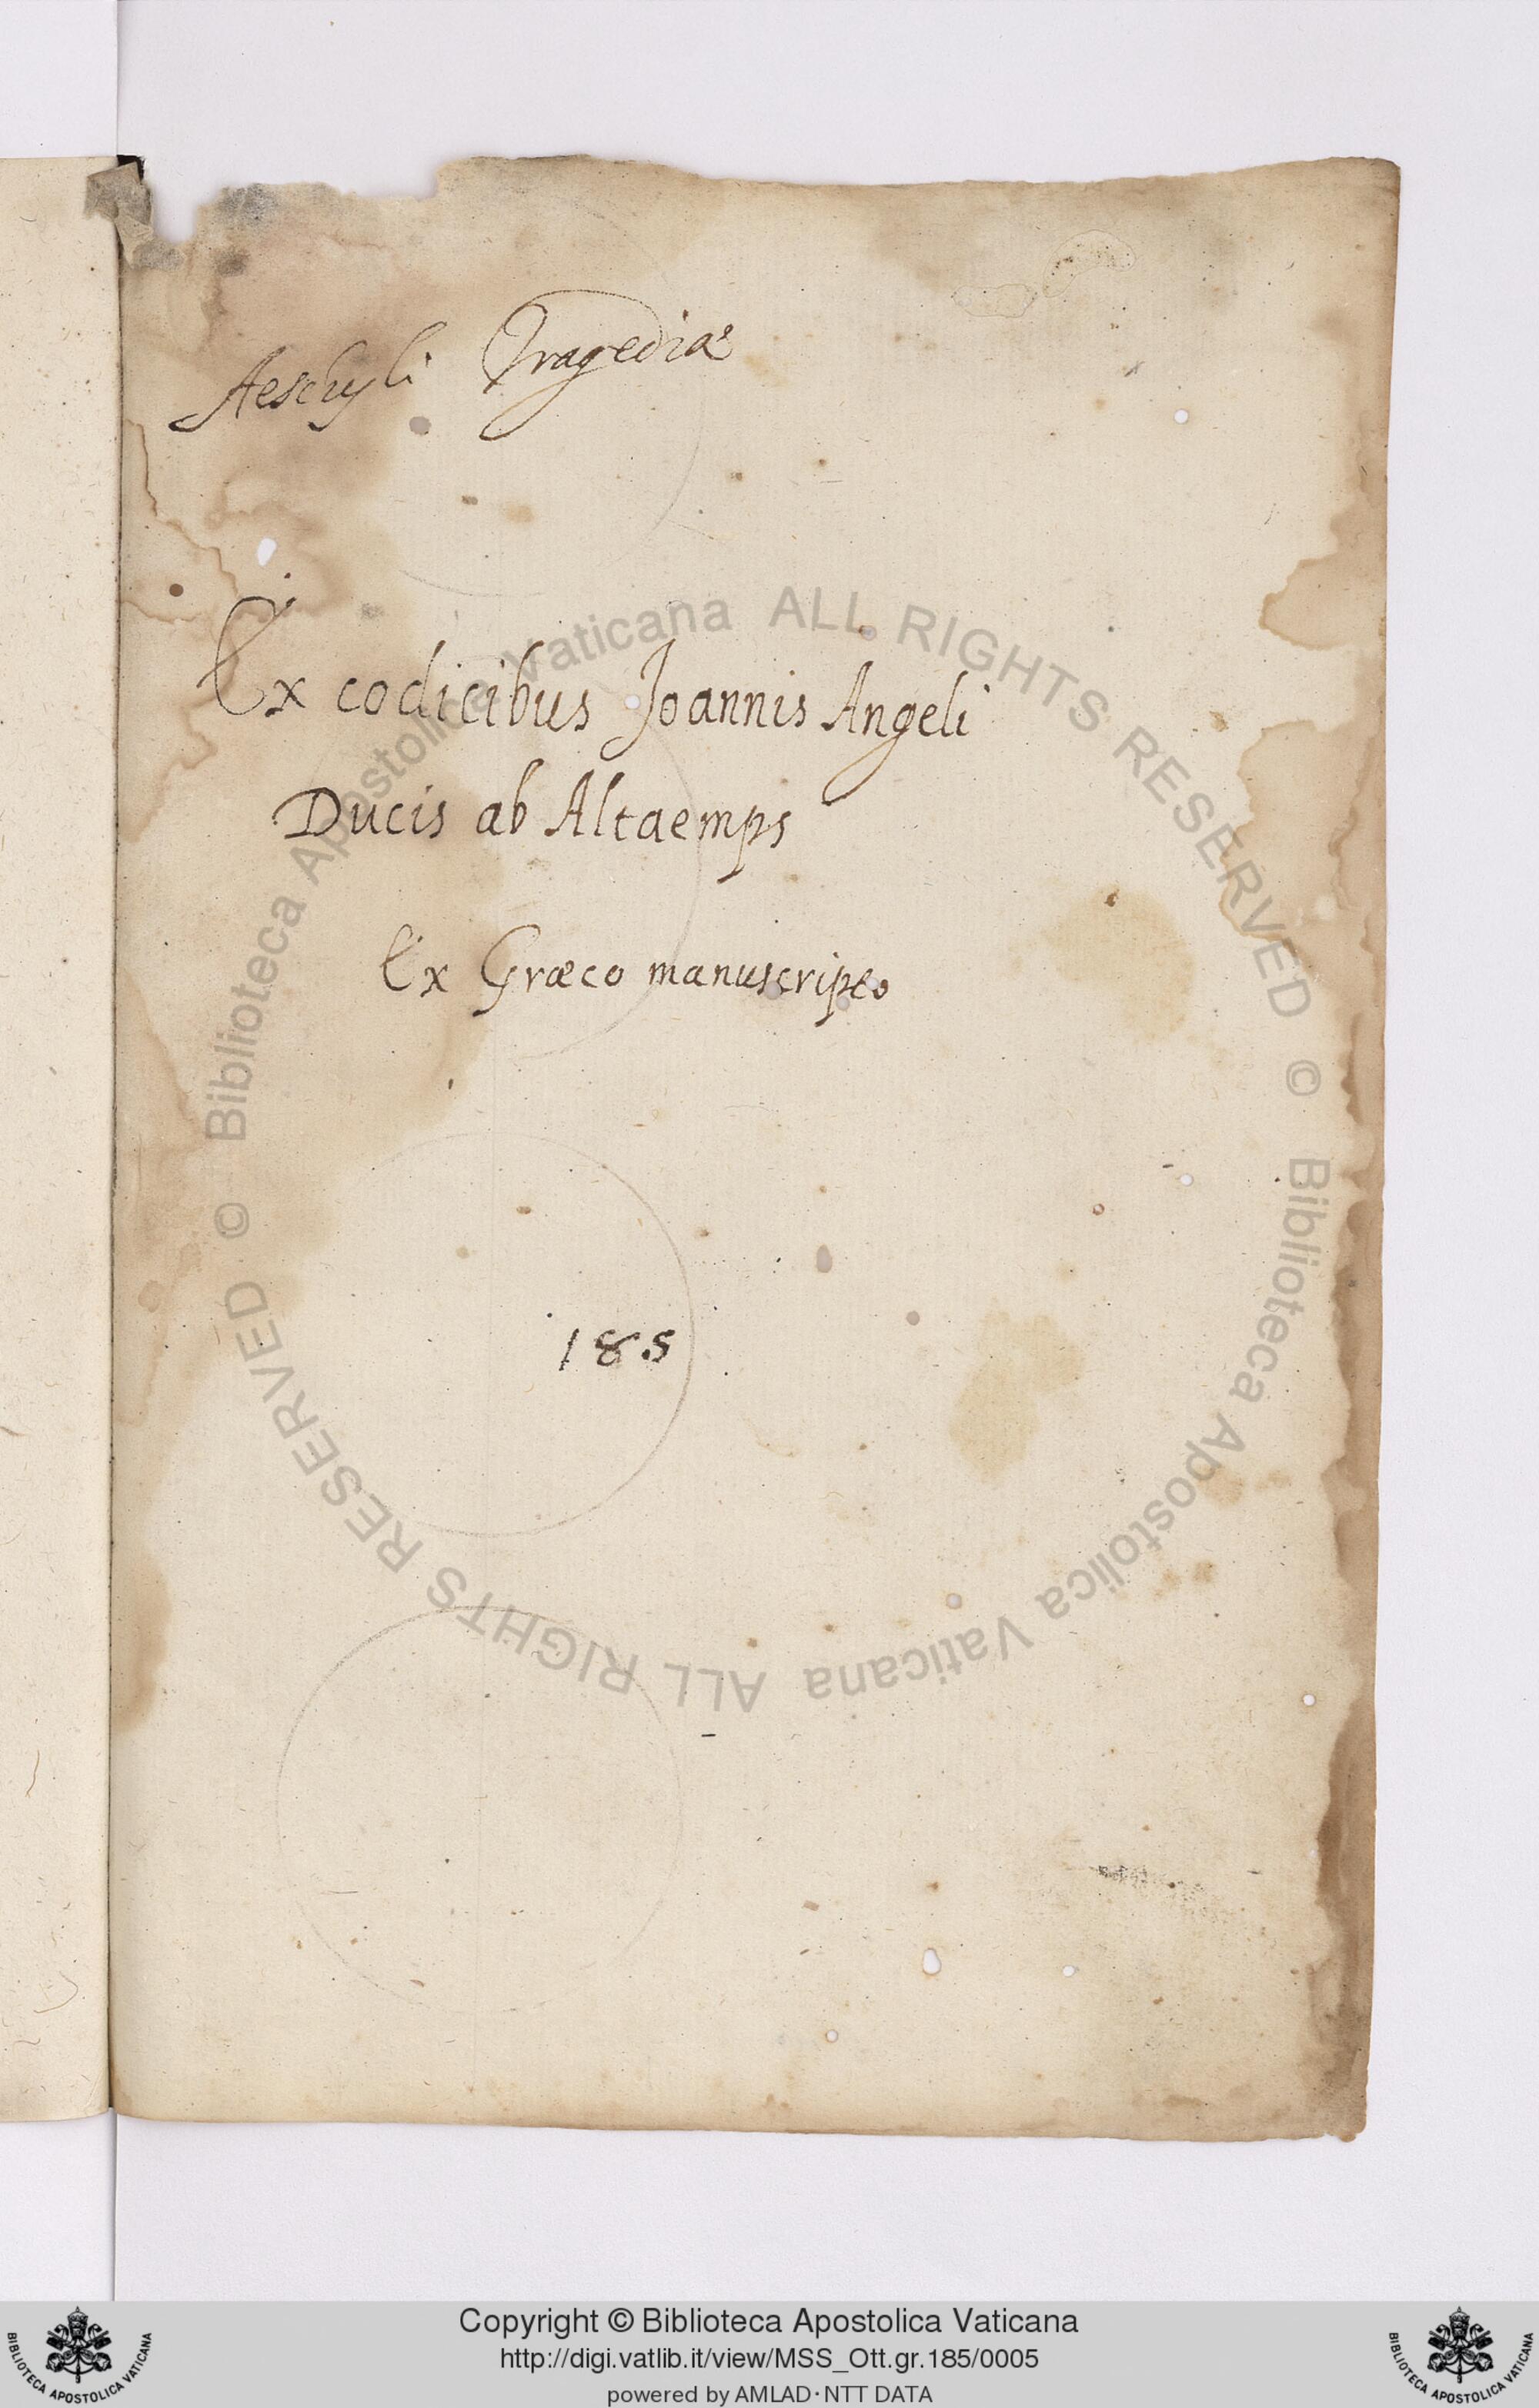 Aeschyli Tragediae
Ex codicibus Joannis Angeli
Ducis ab Altaemps
Ex Græco manuscripto
185
© Biblioteca Apostolica Vaticana ALL RIGHTS RESERVED
© Biblioteca Apostolica Vaticana ALL RIGHTS RESERVED
Copyright © Biblioteca Apostolica Vaticana
http://digi.vatlib.it/view/MSS_Ott.gr.185/0005
powered by AMLAD·NTT DATA
BIBLIOTECA APOSTOLICA VATICANA
BIBLIOTECA APOSTOLICA VATICANA